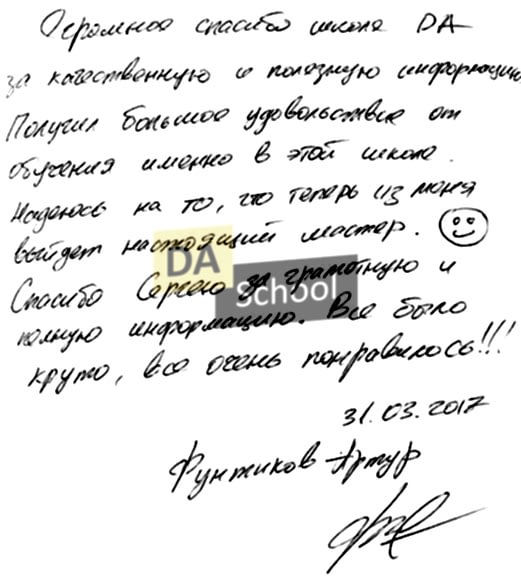 Огромное спасибо школе DA
за качественную и полезную информацию.
Получил большое удовольствие от
обучения именно в этой школе.
Надеюсь на то, что теперь из меня
выйдет настоящий мастер.
DA
school
Спасибо Сергею за грамотную и
полную информацию. Все было
круто, все очень понравилось!!!
31.03.2017
Фунтиков Артур